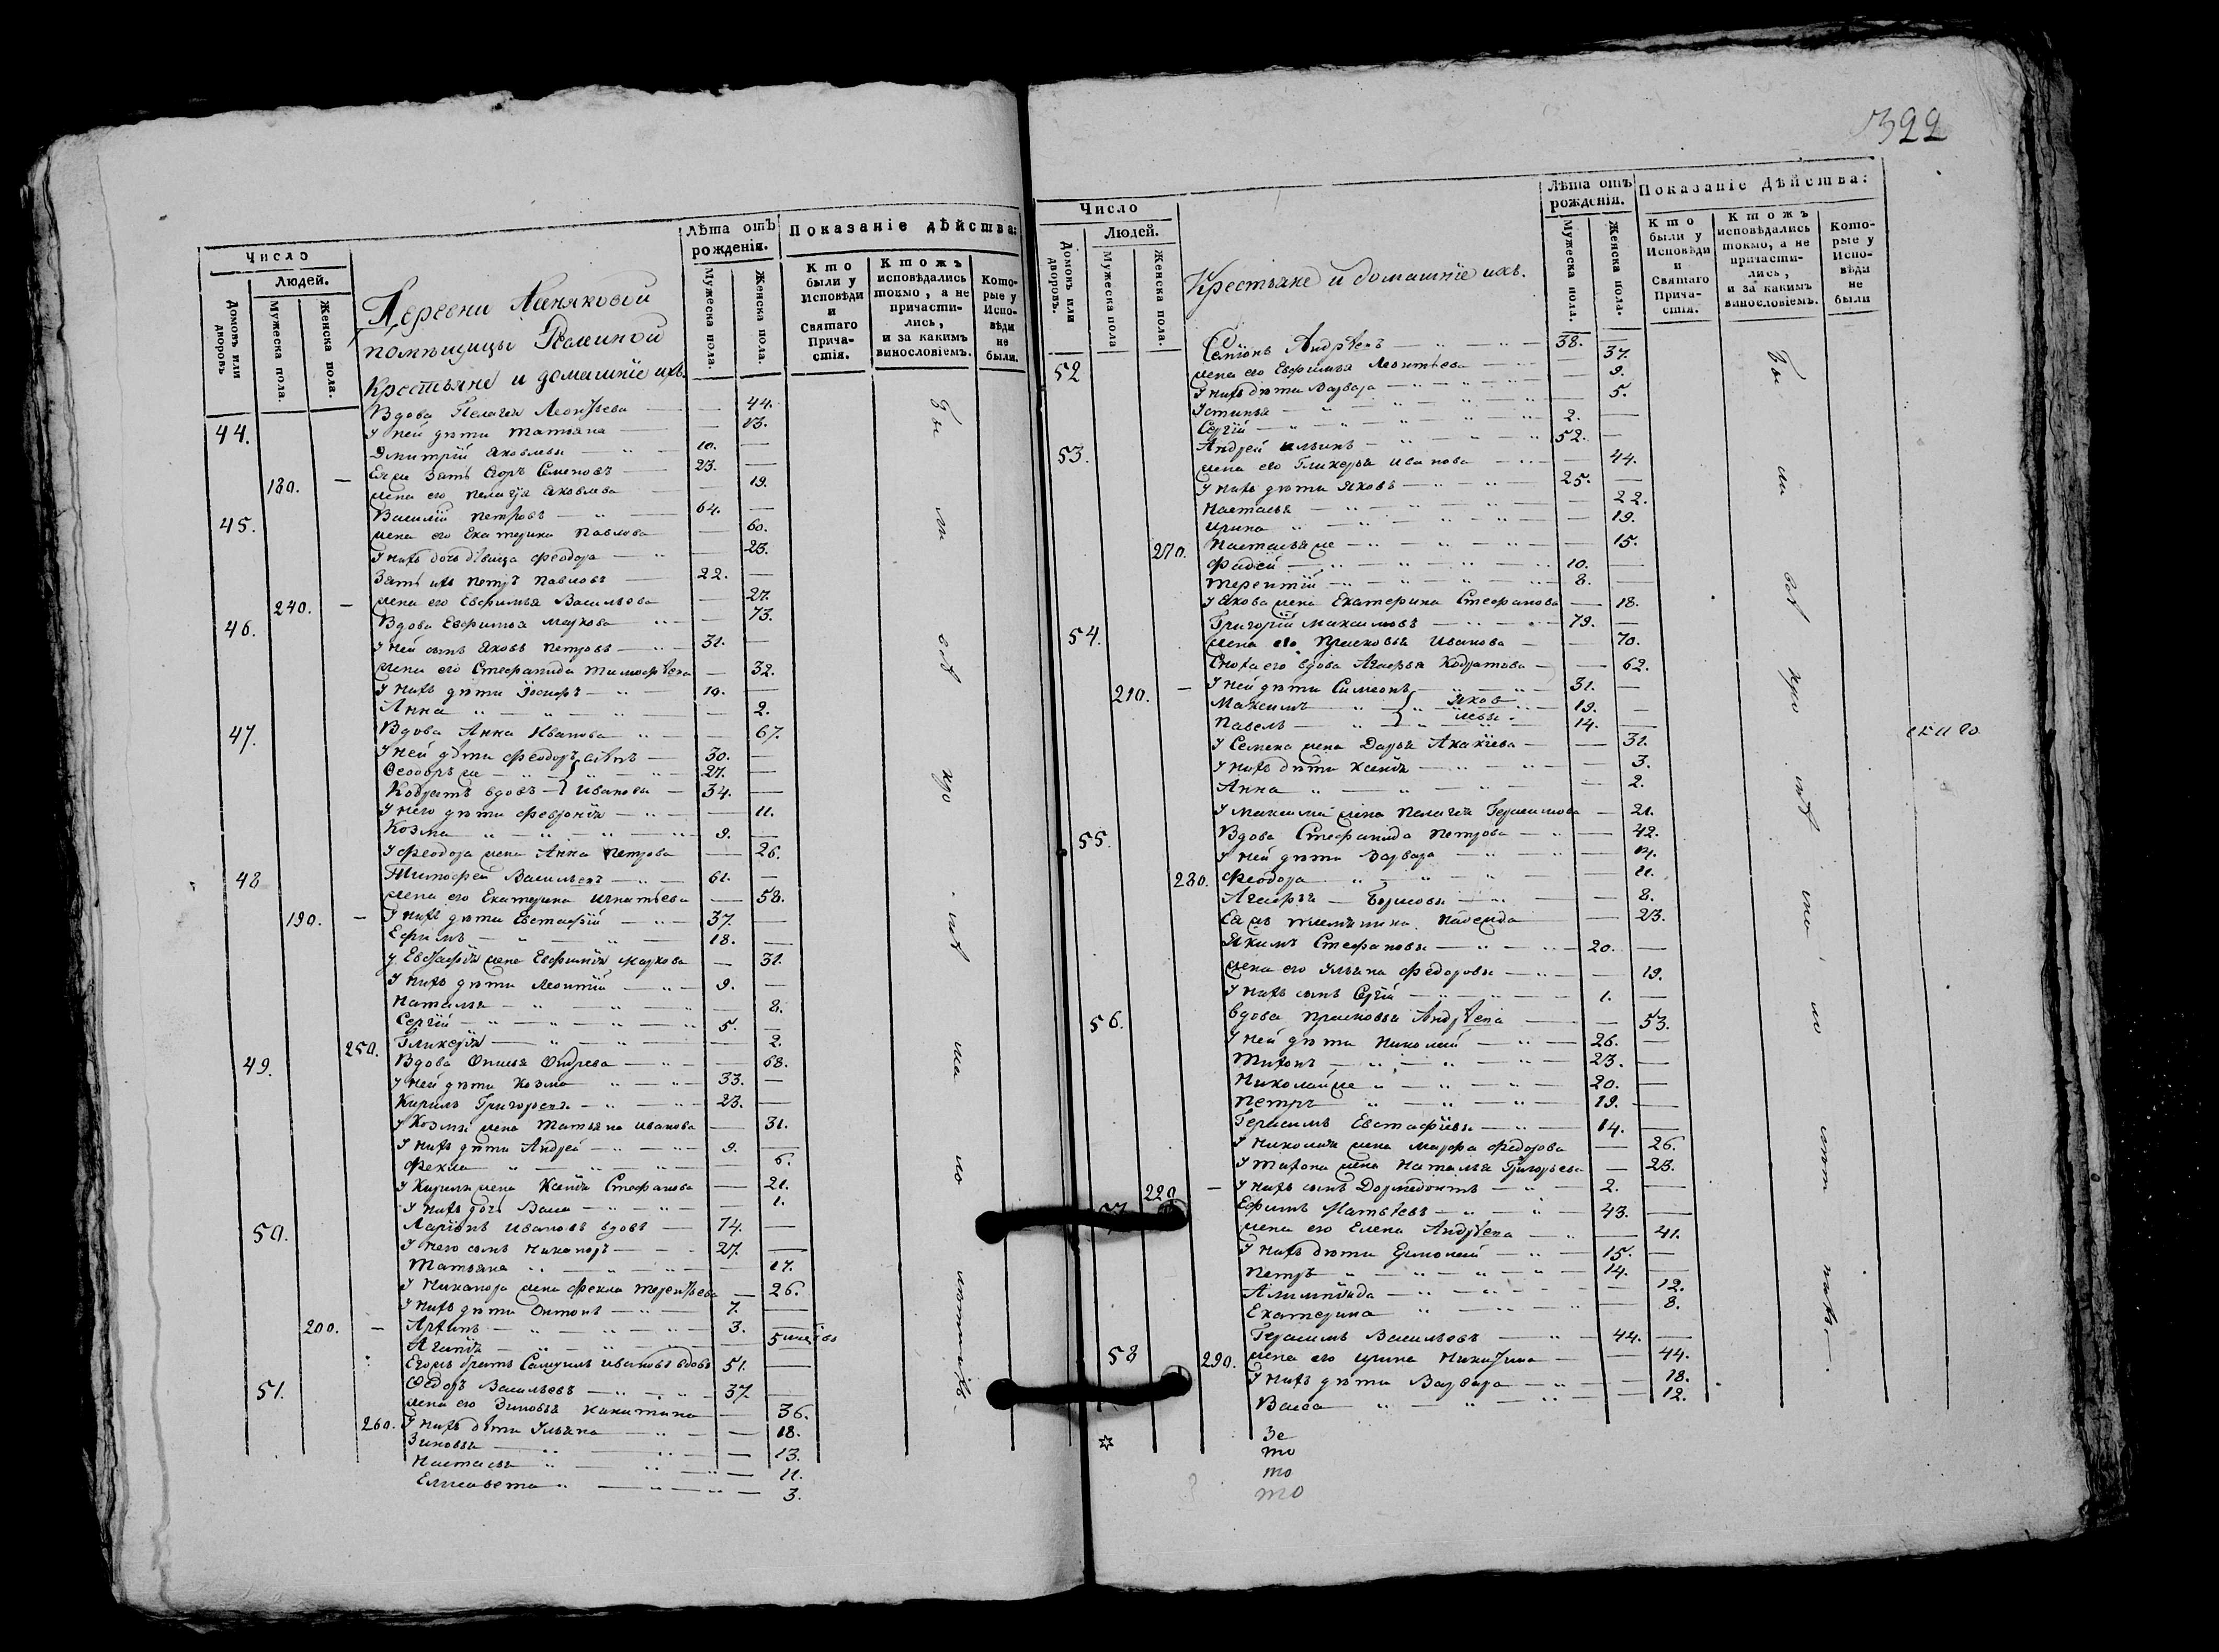 322
Число
Людей.
Домовъ или дворовъ
Мужеска пола.
Женска пола.
Деревни
помѣщицы
Крестьяне и домашніе ихъ.
Лѣта отъ рожденія.
Мужеска пола.
Женска пола.
Показаніе дѣйства:
Кто были у Исповѣди и Святаго Причастія.
Ктожъ исповѣдались токмо, а не причастились, и за какимъ винословіемъ.
Которые у Исповѣди не были.
44. Вдова Пелагея Леонтьева — 44.
У ней дѣти Татьяна — 13.
Дмитрій Яковлевы — 10. —
180. — Ея же зять Егоръ Семеновъ — 23. —
жена его Пелагія Яковлева — 19.
45. Василій Петровъ — 64. —
жена его Екатерина Павлова — 60.
У нихъ дочь дѣвица Феодора — 23.
Зять ихъ Петръ Павловъ — 22. —
240. — жена его Евфимья Васильева — 27.
46. Вдова Евфимья Маркова — 73.
У ней сынъ Яковъ Петровъ — 31. —
жена его Стефанида Тимофѣева — 32.
У нихъ дѣти Іосифъ — 10. —
Анна — 2.
47. Вдова Анна Иванова — 67.
У ней дѣти Феодоръ — 30. —
Феодоръ же — 27. —
Кодратъ вдовъ — Ивановы — 34. —
У него дѣти Февронія — 11.
Козма — 9. —
У Феодора жена Анна Петрова — 26.
48 Тимофей Васильевъ — 61. —
жена его Екатерина Игнатьева — 58.
190. — У нихъ дѣти Евстафій — 37. —
Ефимъ — 18. —
У Евстафія жена Евфимія Маркова — 31.
У нихъ дѣти Леонтій — 9. —
Наталья — 8.
Сергій — 5. —
250. Гликерія — 2.
49. Вдова — 68.
У ней дѣти Козма — 33. —
Кирилъ Григорьевы — 23. —
У Козмы жена Татьяна Иванова — 31.
У нихъ дѣти Андрей — 9. —
Фекла — 6.
У Кирилы жена Ксенія Стефанова — 21.
У нихъ дочь Васса — 1.
50. Ларіонъ Ивановъ вдовъ — 74. —
У него сынъ Никаноръ — 27. —
Татьяна — 17.
У Никанора жена Фекла Терентьева — 26.
У нихъ дѣти Антонъ — 7. —
200. — Архипъ — 3. —
Агапія — 5
Егожъ братъ Самуилъ Ивановъ вдовъ 51. —
51. Ѳедоръ Васильевъ — 37. —
жена его Зиновья Никитина — 36.
260. У нихъ дѣти Ульяна — 18.
Зиновья — 13.
Настасья — 11.
Елисавета — 3.
Число
Людей.
Домовъ или дворовъ.
Мужеска пола
Женска пола.
Крестьяне и домашніе ихъ.
Лѣта отъ рожденія.
Мужеска пола.
Женска пола.
Показаніе дѣйства:
Кто были у Исповѣди и Святаго Причастія.
Ктожъ исповѣдались токмо, а не причастились, и за какимъ винословіемъ.
Которые у Исповѣди не были
52 Андрѣевъ — 38. —
жена его Евфимья Леонтьева — 37.
У нихъ дѣти Варвара — 9.
Устинья — 5.
Сергій — 2. —
53. Андрей Ильинъ — 52. —
жена его Гликерья Иванова — 44.
У нихъ дѣти Яковъ — 25. —
Настасья — 22.
Ирина — 19.
270. Настасья же — 15.
Фадей — 10. —
Терентій — 8. —
У Якова жена Екатерина Стефанова — 18.
54. Григорій Максимовъ — 79. —
жена его Прасковья Иванова — 70.
Сноха его вдова Агафья Кодратова — 62.
210. — У ней дѣти Симеонъ — 31. —
Максимъ — Яковлевы — 19. —
Павелъ — 14. —
У Семена жена Дарья Акакіева — 31.
У нихъ дѣти Ксенія — 3.
Анна — 2.
У Максима жена Пелагея Герасимова — 21.
55. Вдова Стефанида Петрова — 42.
У ней дѣти Варвара — 14.
280. Феодора — 11.
Агафья — Борисовы — 8.
Ея жъ племянница Надежда — 23.
Якимъ Стефановы — 20. —
жена его Ульяна Федорова — 19.
У нихъ сынъ Сергій — 1. —
56. Вдова Прасковья Андрѣева — 53.
У ней дѣти Николай — 26. —
Тихонъ — 23. —
Николай же — 20. —
Петръ — 19. —
Герасимъ Евстафіевы — 14. —
У Николая жена Марфа Федорова — 26.
У Тихона жена Наталья Григорьева — 23.
220 — У нихъ сынъ Дормедонтъ — 2. —
57 Ефимъ Матвѣевъ — 43. —
жена его Елена Андрѣева — 41.
У нихъ дѣти Ермолай — 15. —
Петръ — 14. —
Алимпіада — 12.
Екатерина — 8.
58 Герасимъ Васильевъ — 44. —
290. жена его Ирина Никитина — 44.
У нихъ дѣти Варвара — 18.
Васса — 12.